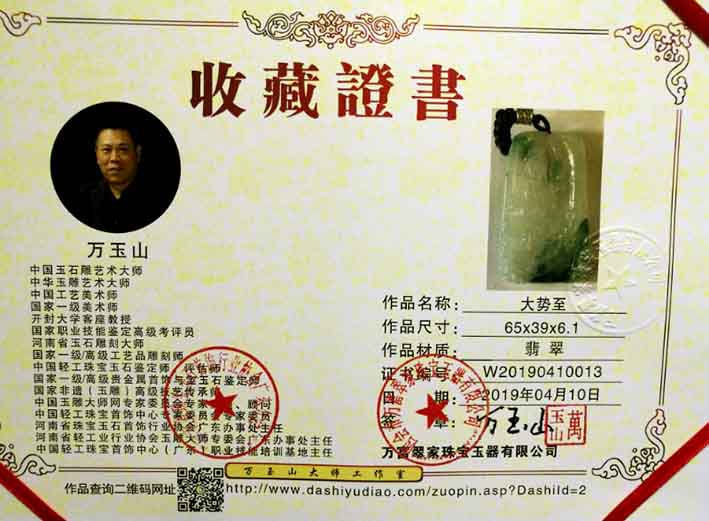 收藏證書
万玉山
中国玉石雕艺术大师
中华玉雕艺术大师
中国工艺美术师
国家一级美术师
开封大学客座教授
国家职业技能鉴定高级考评员
河南省玉石雕刻大师
国家一级/高级工艺品雕刻师
中国轻工珠宝玉石鉴定师 评估师
国家一级/高级贵金属首饰与宝玉石鉴定师
国家非遗(玉雕)高级技艺传承师
中国玉雕大师网专家委员会专家 顾问
中国轻工珠宝首饰中心专家委员 专家委员
河南省珠宝玉石首饰行业协会广东办事处主任
河南省轻工业行业协会玉雕大师专委会广东办事处主任
中国轻工珠宝首饰中心(广东)职业技能培训基地主任
作品名称: 大势至
作品尺寸: 65x39x6.1
作品材质: 翡翠
证书编号: W20190410013
日 期: 2019年04月10日
签 章: 万玉山
萬玉山
万富翠家珠宝玉器有限公司
万玉山大师工作室
作品查询二维码网址
http://www.dashiyudiao.com/zuopin.asp?DashiId=2